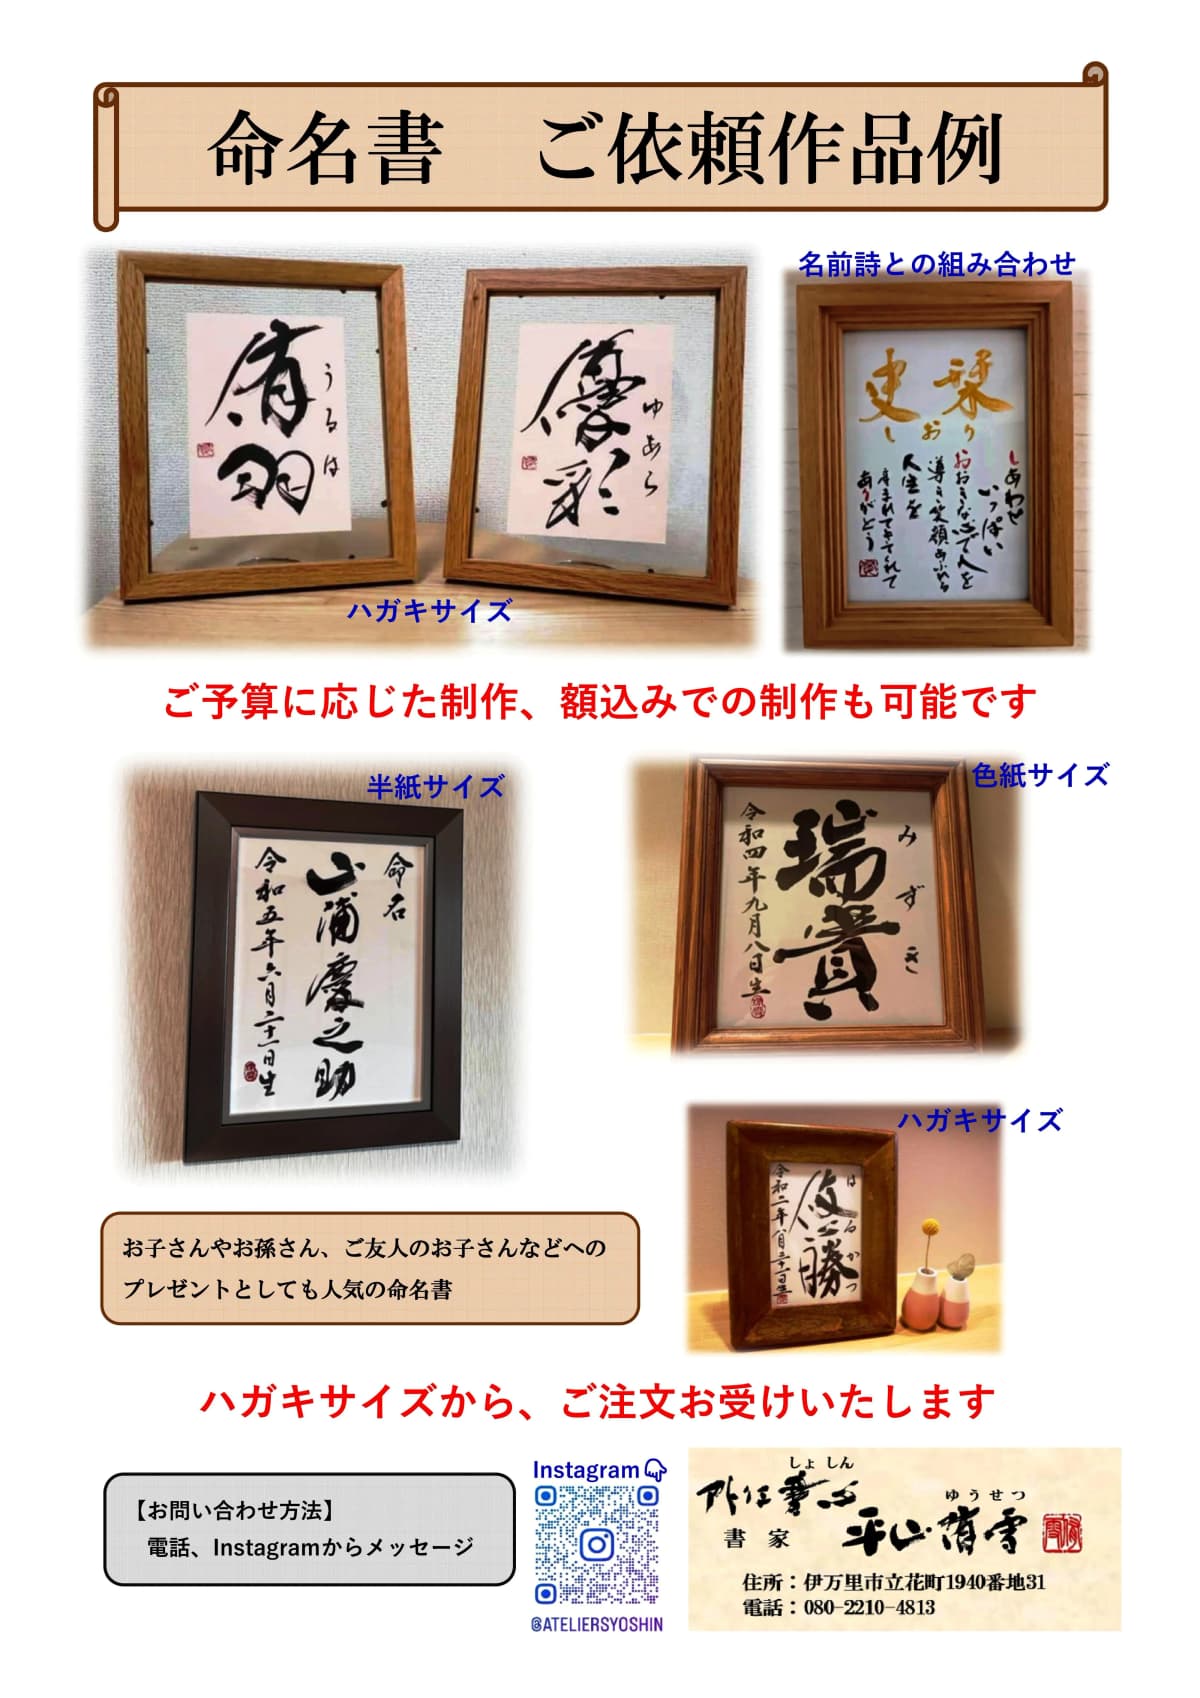 命名書　ご依頼作品例
うるは
羽
ゆあら
優彩
ハガキサイズ
名前詩との組み合わせ
栞
しおり
しあわせ
いっぱい
おおきな心で人を
導き笑顔あふれる
人生を
産まれてきてくれて
ありがとう
ご予算に応じた制作、額込みでの制作も可能です
半紙サイズ
命名
山浦慶之助
令和五年六月二十一日生
色紙サイズ
みずき
瑞貴
令和四年九月八日生
ハガキサイズ
はるかつ
悠勝
令和二年八月三十一日生
お子さんやお孫さん、ご友人のお子さんなどへの
プレゼントとしても人気の命名書
ハガキサイズから、ご注文お受けいたします
【お問い合わせ方法】
電話、Instagramからメッセージ
Instagram
@ATELIERSYOSHIN
しょしん
ゆうせつ
書家 平山雪
住所：伊万里市立花町1940番地31
電話：080-2210-4813